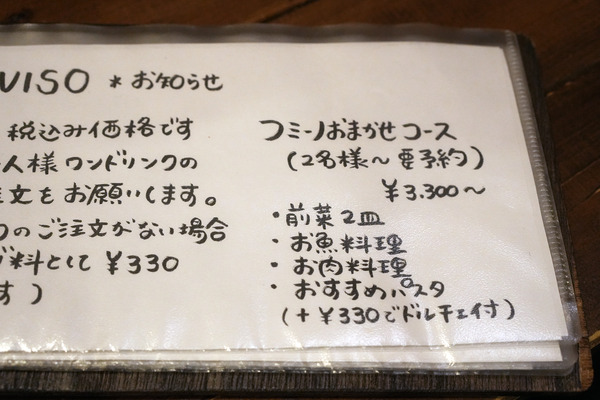 VISO * お知らせ
税込み価格です
人様ワンドリンクの
文をお願いします。
のご注文がない場合
料として ¥330
す)
フミーノおまかせコース
(2名様〜要予約)
¥3,300〜
・前菜2皿
・お魚料理
・お肉料理
・おすすめパスタ
(+¥330でドルチェ付)